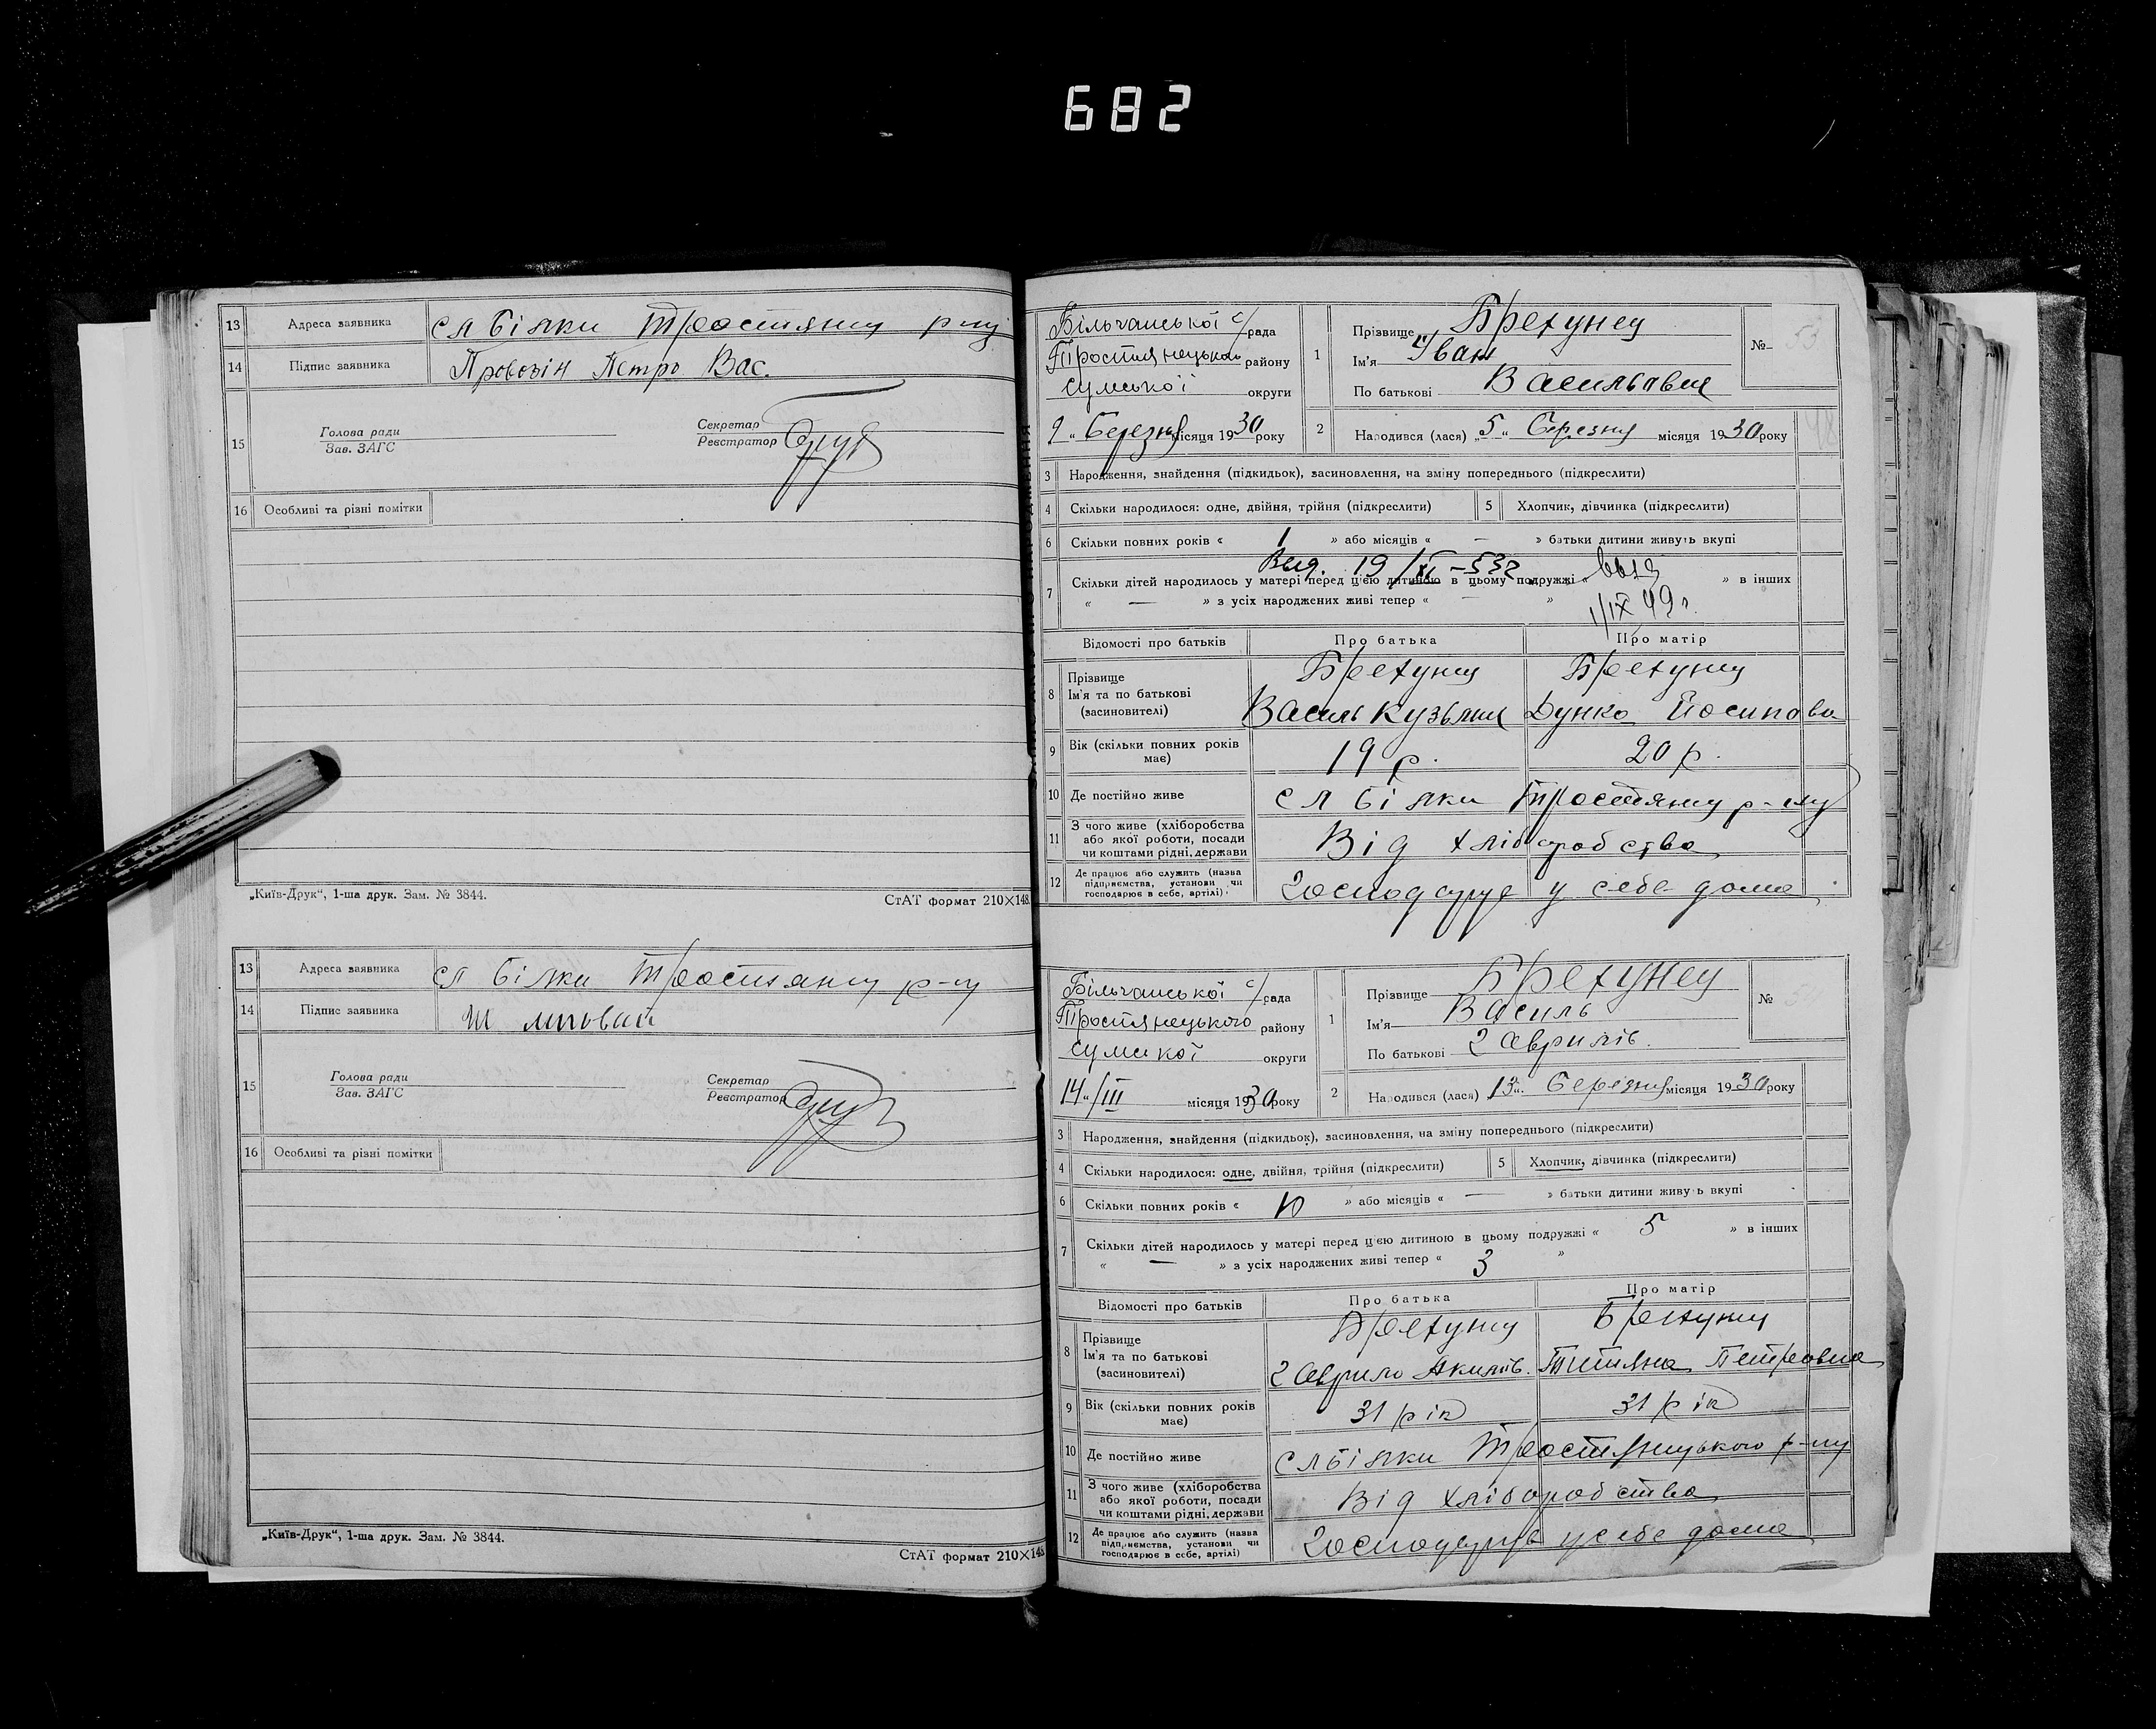 682
13 Адреса заявника сл Білки Тростянец р-ну
14 Підпис заявника Петро Вас.
15 Голова ради
Зав. ЗАГС
Секретар
Реєстратор
16 Особливі та різні помітки
„Київ-Друк“, 1-ша друк. Зам. № 3844. СтАТ формат 210×148.
13 Адреса заявника сл Білки Тростянец р-ну
14 Підпис заявника
15 Голова ради
Зав. ЗАГС
Секретар
Реєстратор
16 Особливі та різні помітки
„Київ-Друк“, 1-ша друк. Зам. № 3844.
СтАТ формат 210×148
Більчанської с/рада
Тростянецького району
Сумської округи
9 „ Березня місяця 1930 року
1 Прізвище Брехунец
Ім'я Іван
По батькові Васильович
№ 53
2 Народився (лася) „5„ березня місяця 1930 року
3 Народження, знайдення (підкидьок), засиновлення, на зміну попереднього (підкреслити)
4 Скільки народилося: одне, двійня, трійня (підкреслити) 5 Хлопчик, дівчинка (підкреслити)
6 Скільки повних років « 1 » або місяців « — » батьки дитини живуть вкупі
Выд. 19/XI-532
7 Скільки дітей народилось у матері перед цією дитиною в цьому подружжі « » в інших
« — » з усіх народжених живі тепер « — »
1/IX 49 г.
Відомості про батьків Про батька Про матір
8 Прізвище
Ім'я та по батькові
(засиновителі)
Брехунец Брехунец
Василь Кузьмич Дунка Йосипова
9 Вік (скільки повних років
має) 19 р. 20 р.
10 Де постійно живе сл Білки Тростянец р-ну
11 З чого живе (хліборобства
або якої роботи, посади
чи коштами рідні, держави
Від хліборобства
12 Де працює або служить (назва
підприємства, установи чи
господарює в себе, артілі)
Господарує у себе дома
Більчанської с/рада
Тростянецького району
Сумської округи
14„/III місяця 1930 року
1 Прізвище Брехунец
Ім'я Василь
По батькові Гаврилів.
№
2 Народився (лася) „13„ березня місяця 1930 року
3 Народження, знайдення (підкидьок), засиновлення, на зміну попереднього (підкреслити)
4 Скільки народилося: одне, двійня, трійня (підкреслити) 5 Хлопчик, дівчинка (підкреслити)
6 Скільки повних років « 10 » або місяців « — » батьки дитини живуть вкупі
7 Скільки дітей народилось у матері перед цією дитиною в цьому подружжі « 5 » в інших
« — » з усіх народжених живі тепер « 3 »
Відомості про батьків Про батька Про матір
8 Прізвище
Ім'я та по батькові
(засиновителі)
Брехунец Брехунец
Гаврило Акимів. Титяна Петровна
9 Вік (скільки повних років
має) 31 рік 31 рік
10 Де постійно живе сл Білки Тростянецького р-ну
11 З чого живе (хліборобства
або якої роботи, посади
чи коштами рідні, держави
Від хліборобства
12 Де працює або служить (назва
підприємства, установи чи
господарює в себе, артілі)
у себе дома